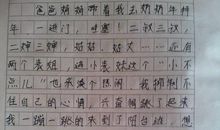 爸爸妈妈带着我去奶奶年拜
年。一进门,哇塞!二叔三叔,
二婶三婶,姑姑,姑父……还有
两个表姐,连小表妹这个"小不
点儿"也来凑个热闹。我抑制不
住自己的心情,兴高蹦跳了起来
我一蹦一跳的来到了阳台姐,想